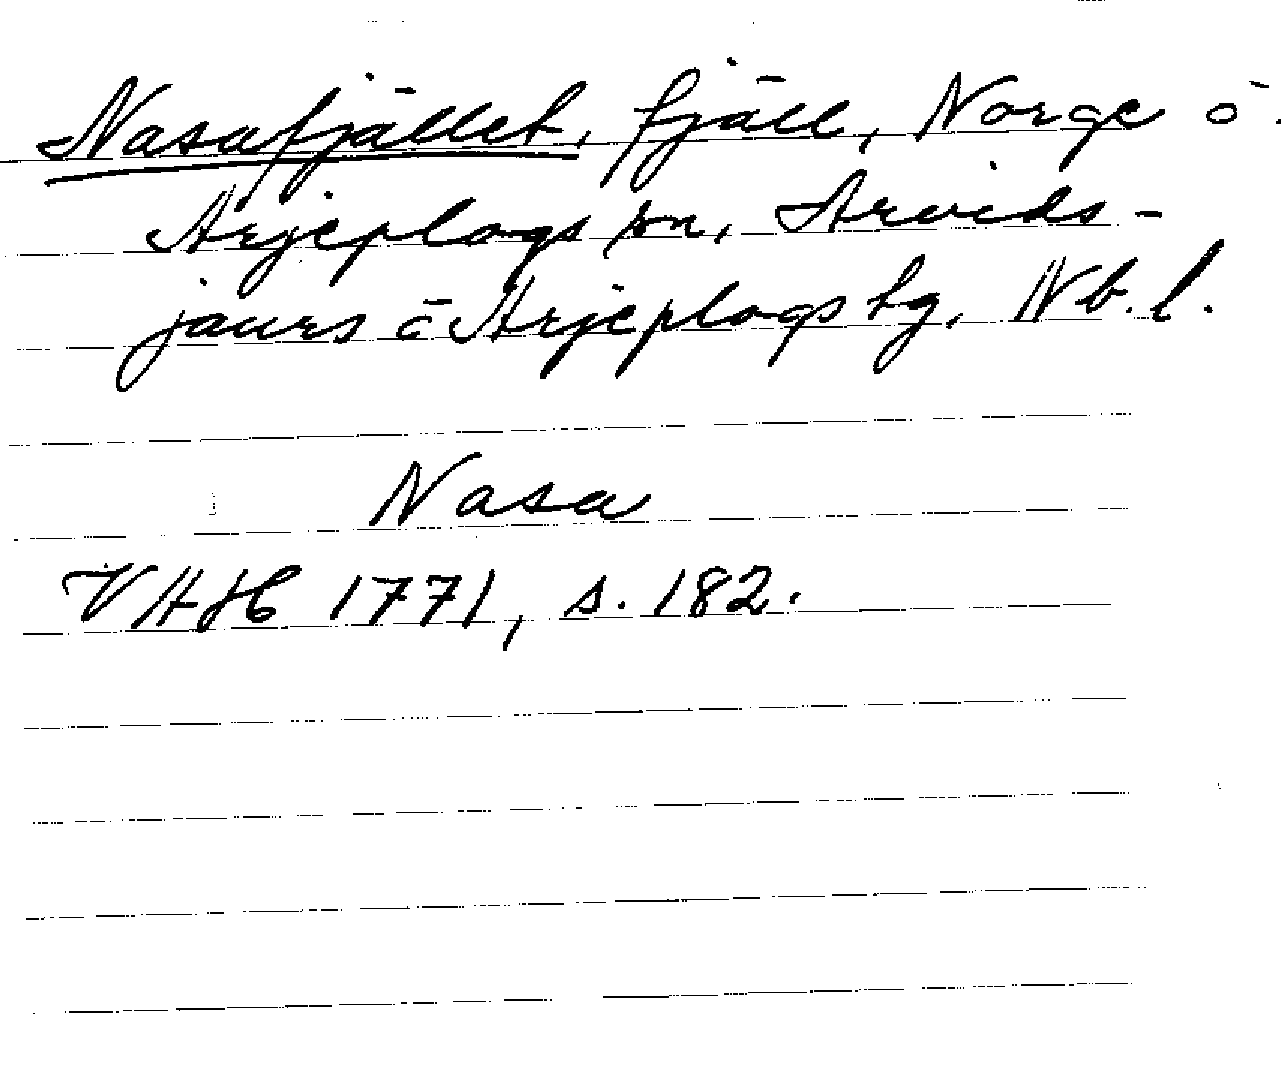 Nasafjället, fjäll, Norge o.
Arjeplogs sn, Arvids-
jaurs o Arjeplogs tg, Nb. l.
Nasa
VHAH 1771, s. 182.